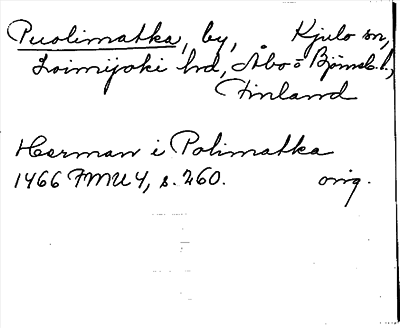 Puolimatka, by, Kjulo sn,
Loimijoki hd, Åbo o Björneb. l.,
Finland
Herman i Polimatka
1466 FMU 4, s. 260. orig.